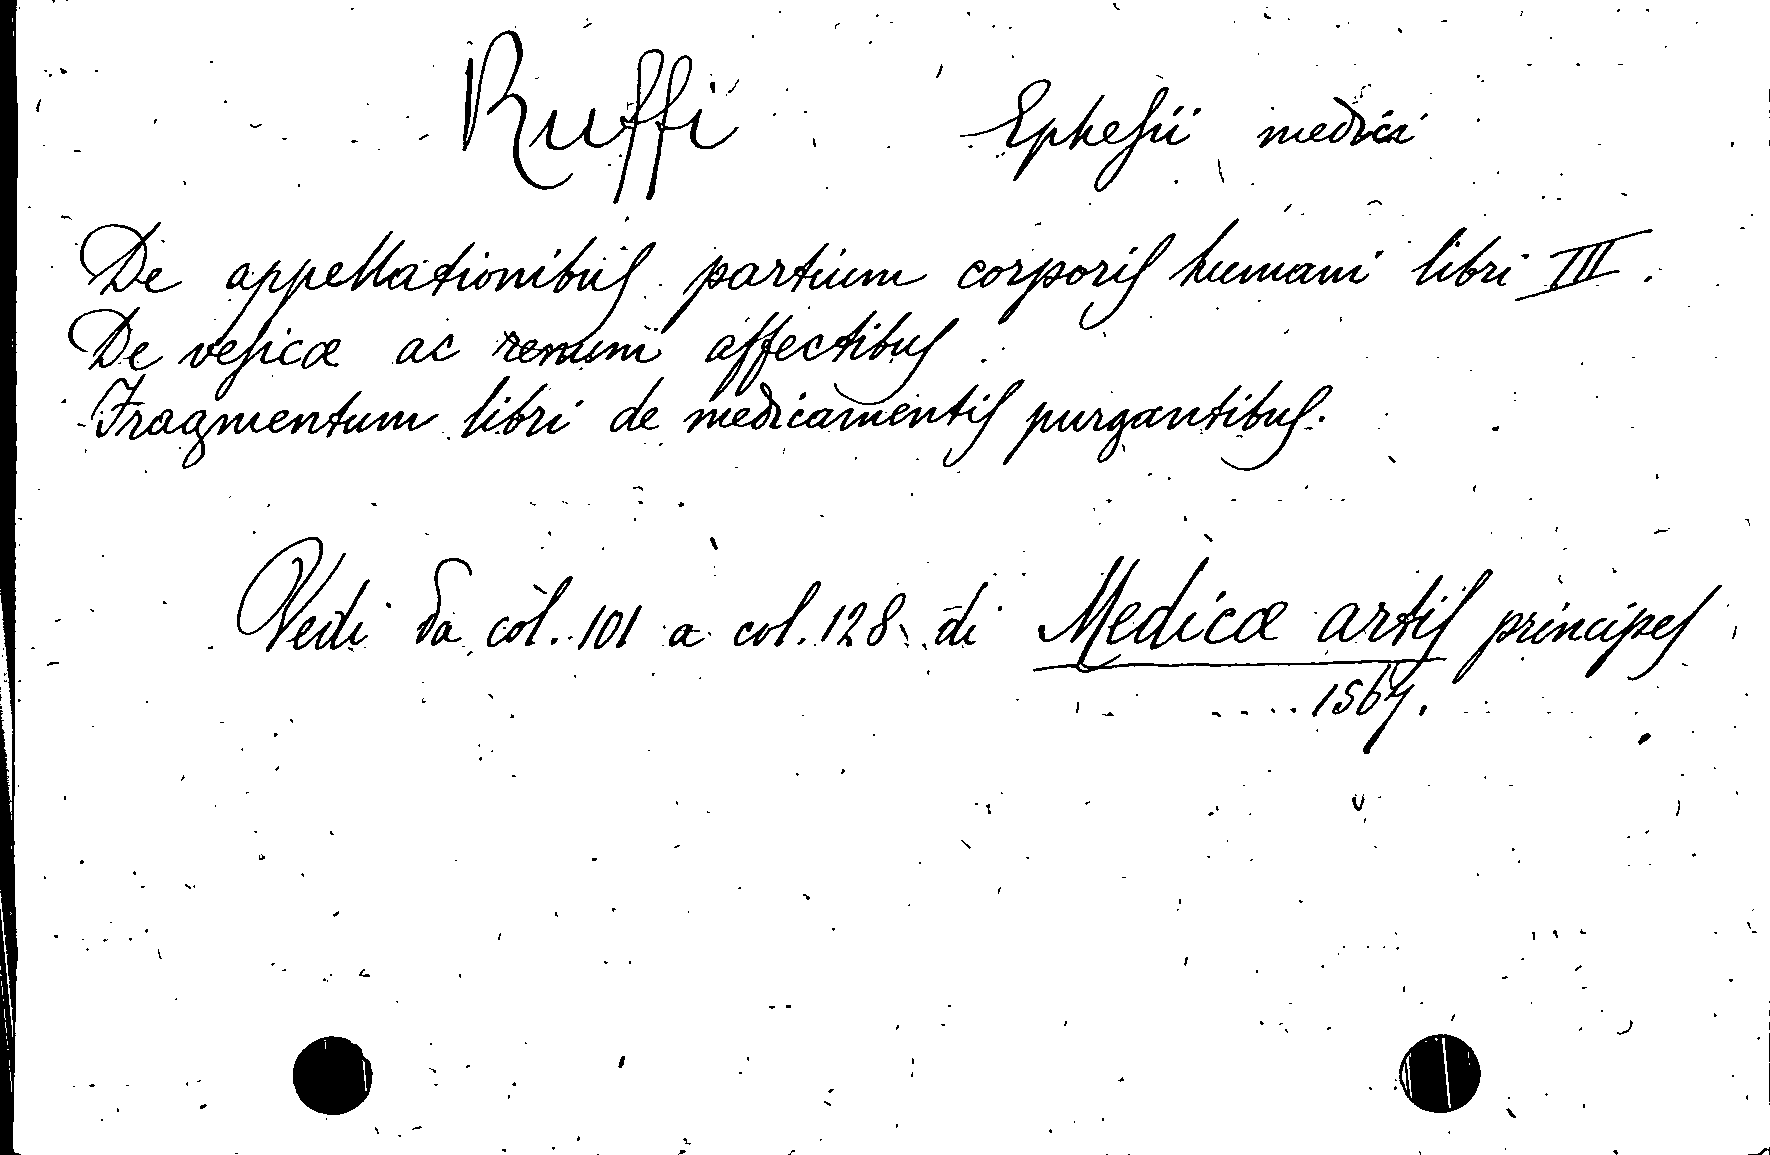 Ruffi Ephesii medici
De appellationibus partium corporis humani libri III.
De vesicæ ac renum affectibus.
Fragmentum libri de medicamentis purgantibus.
Vedi da col. 101 a col. 128 di Medicæ artis principes
1567.